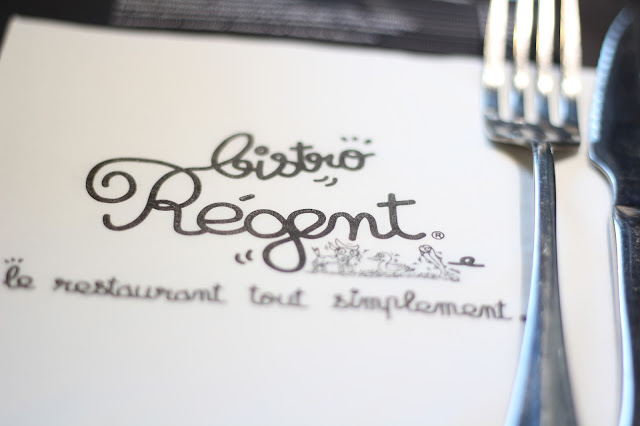 bistro
Régent®
le restaurant tout simplement.